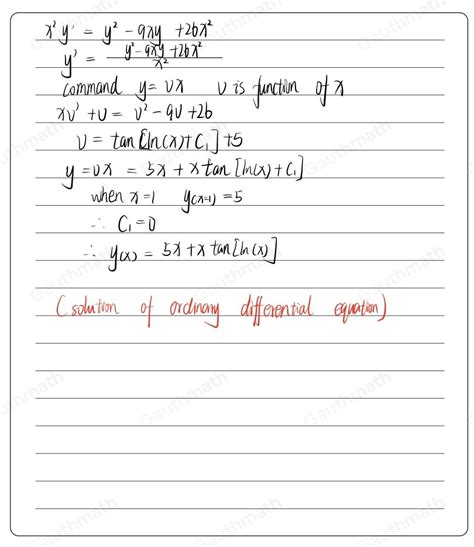 x² y' = y² - 9xy + 26x²
y' = y² - 9xy + 26x² / x²
command y = vx v is function of x
xv' + v = v² - 9v + 26
v = tan[ln(x) + C₁] + 5
y = vx = 5x + x tan[ln(x) + C₁]
when x = 1 y(x=1) = 5
∴ C₁ = 0
∴ y(x) = 5x + x tan[ln(x)]
(solution of ordinary differential equation)
Gauthmath